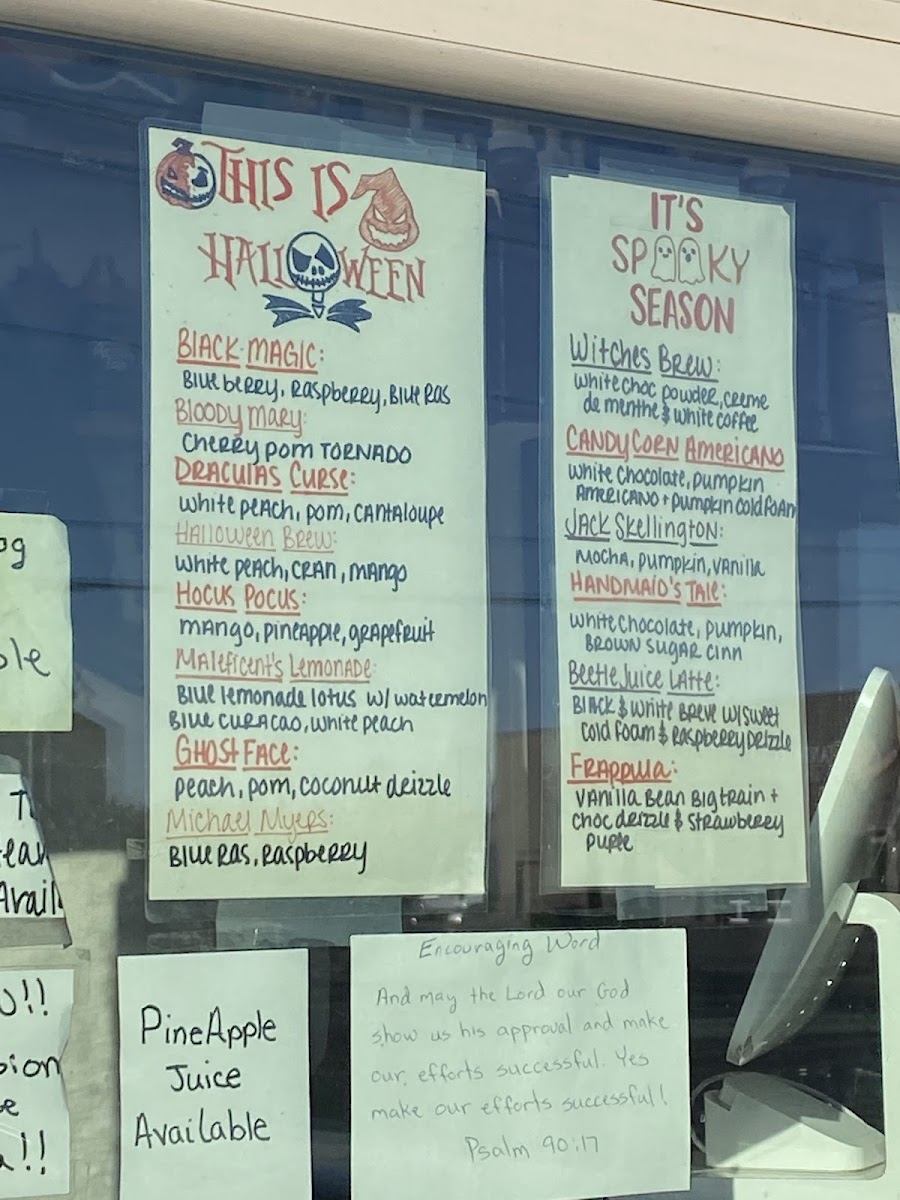 THIS IS
HALLOWEEN
BLACK MAGIC:
Blueberry, Raspberry, Blue Ras
Bloody Mary:
Cherry Pom TORNADO
DRACULAS CURSE:
White Peach, Pom, Cantaloupe
Halloween Brew:
White Peach, Cran, Mango
Hocus Pocus:
Mango, Pineapple, Grapefruit
Maleficent's Lemonade:
Blue lemonade lotus w/ watermelon
Blue Curacao, white peach
GHOST FACE:
Peach, Pom, Coconut drizzle
Michael Myers:
Blue Ras, Raspberry
IT'S
SPOOKY
SEASON
Witches Brew:
White choc powder, creme
de menthe & white coffee
CANDY CORN AMERICANO
White Chocolate, Pumpkin
AMERICANO + Pumpkin cold foam
Jack Skellington:
Mocha, Pumpkin, Vanilla
HANDMAID'S TALE:
White Chocolate, Pumpkin,
BROWN SUGAR CINN
Beetle Juice Latte:
Black & White Breve w/ sweet
cold foam & Raspberry Drizzle
FRAPPULA:
Vanilla Bean Bigtrain +
choc drizzle & strawberry
puree
PineApple
Juice
Available
Encouraging Word
And may the Lord our God
show us his approval and make
our efforts successful. Yes
make our efforts successful!
Psalm 90:17